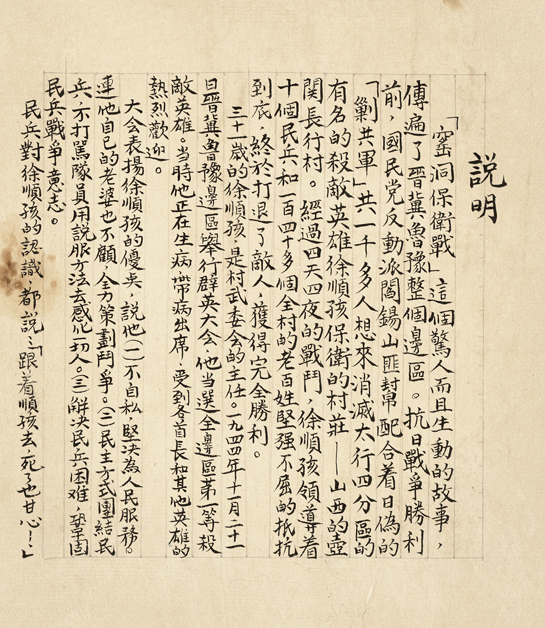 説明
「窰洞保衛戰」這個驚人而且生動的故事，
傳遍了晉冀魯豫整個邊區。抗日戰爭勝利
前，國民党反動派閻錫山匪幫配合着日偽的
「剿共軍」共一千多人想來消滅太行四分區的
有名的殺敵英雄徐順孩保衛的村莊——山西的壺
関長行村。經過四天四夜的戰鬥，徐順孩領導着
十個民兵，和一百四十多個全村的老百姓堅强不屈的抵抗
到底，終於打退了敵人，獲得完全勝利。
三十一歲的徐順孩，是村武委会的主任。一九四四年十一月二十一
日晉冀魯豫邊區舉行群英大会，他当選全邊區第一等殺
敵英雄。当時他正在生病，帶病出席，受到各首長和其他英雄的
熱烈歡迎。
大会表揚徐順孩的優奌，説他(一)不自私，堅决為人民服務。
連他自己的老婆也不顧，全力策劃鬥爭。(二)民主方式團結民
兵，不打罵隊員用説服方法去感化一切人。(三)解决民兵困难，鞏固
民兵戰爭意志。
民兵對徐順孩的認識，都説：「跟着順孩去，死了也甘心！」